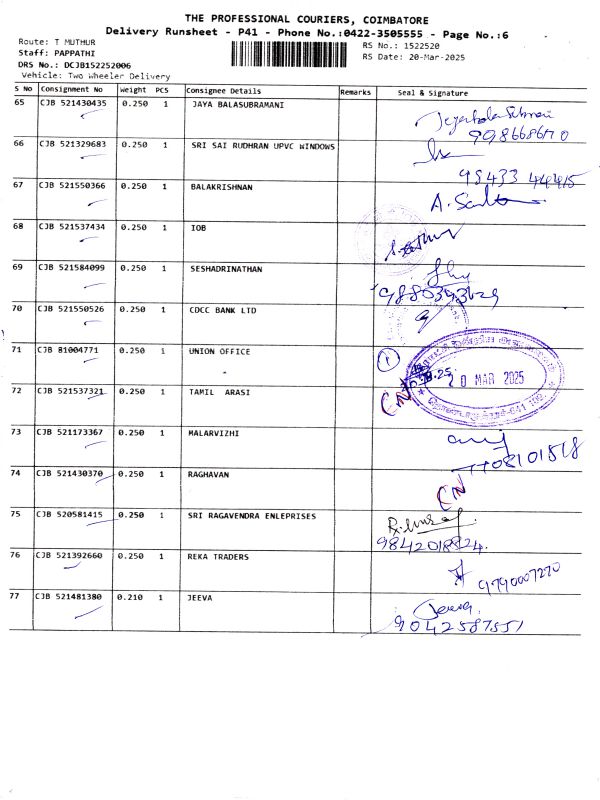 THE PROFESSIONAL COURIERS, COIMBATORE
Delivery Runsheet - P41 - Phone No.:0422-3505555 - Page No.:6
Route: T MUTHUR
RS No.: 1522520
Staff: PAPPATHI
RS Date: 20-Mar-2025
DRS No.: DCJB152252006
Vehicle: Two Wheeler Delivery
S No Consignment No Weight PCS Consignee Details Remarks Seal & Signature
65 CJB 521430435 0.250 1 JAYA BALASUBRAMANI
66 CJB 521329683 0.250 1 SRI SAI RUDHRAN UPVC WINDOWS
67 CJB 521550366 0.250 1 BALAKRISHNAN
68 CJB 521537434 0.250 1 IOB
69 CJB 521584099 0.250 1 SESHADRINATHAN
70 CJB 521550526 0.250 1 CDCC BANK LTD
71 CJB 81004771 0.250 1 UNION OFFICE
20 MAR 2025
72 CJB 521537321 0.250 1 TAMIL ARASI
CN
73 CJB 521173367 0.250 1 MALARVIZHI
74 CJB 521430370 0.250 1 RAGHAVAN
CN
75 CJB 520581415 0.250 1 SRI RAGAVENDRA ENLEPRISES
76 CJB 521392660 0.250 1 REKA TRADERS
9790007270
77 CJB 521481380 0.210 1 JEEVA
Jeeva
9042587551